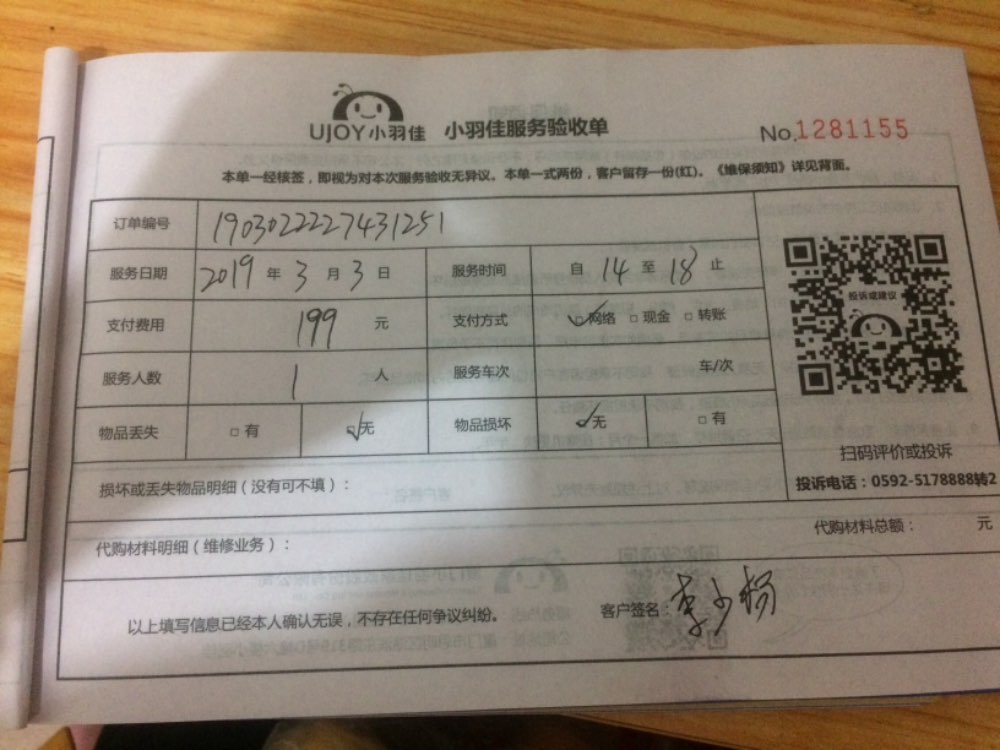 UJOY小羽佳 小羽佳服务验收单 No.1281155
本单一经核签，即视为对本次服务验收无异议。本单一式两份，客户留存一份(红)。《维保须知》详见背面。
订单编号 1903022227431251
服务日期 2019 年 3 月 3 日 服务时间 自 14 至 18 止
投诉或建议
支付费用 199 元 支付方式 ☑网络 □现金 □转账
服务人数 1 人 服务车次 车/次
物品丢失 □有 ☑无 物品损坏 ☑无 □有
扫码评价或投诉
投诉电话：0592-5178888转2
损坏或丢失物品明细（没有可不填）：
代购材料明细（维修业务）： 代购材料总额： 元
以上填写信息已经本人确认无误，不存在任何争议纠纷。 客户签名：李少杨